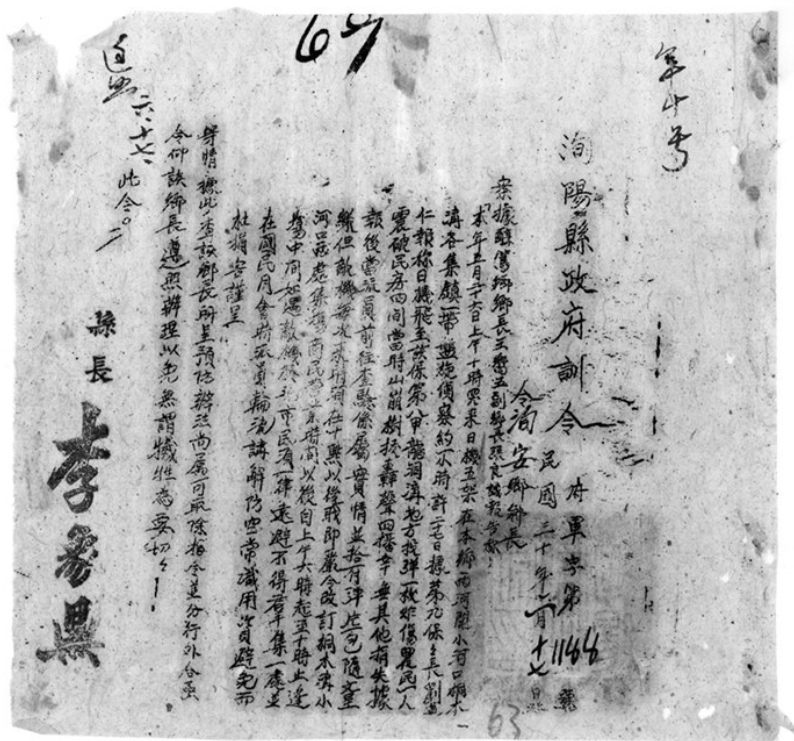 洵陽縣政府訓令
府軍字第1188號
民國三十年六月十七日
令洵安鄉鄉長
案據鄉鄉長王藝五副鄉長張良誠報
「本年五月二十六日上午十時來日機五架在本鄉西河關小河口桐木
溝各集鎮一帶盤旋偵察約一小時許二十七日據第九保保長劉進
仁報称日機飛至該保第八甲龍洞溝地方投弹一枚炸傷農民一人
震破民房四間當時山崩樹拔轟聲四播幸無其他損失據
報後當派員前往查驗係屬實情並拾有弹片一包隨文呈
繳但敵機每次來時均在十點以後職即嚴令改訂桐木溝小
河口兩處集場商民時間以後自上午六時起至十時止逢
場中間如遇敵機市民須一律遠避不得若干集一處並
在國民月會時派員輪流講解防空常識用資避免而
杜損害謹呈」
等情據此查該鄉長所呈預防辦法尚屬可取除指令並分行外合亟
令仰該鄉長遵照辦理以免無謂犧牲為要切切
此令
六、十七、
縣長 李
63